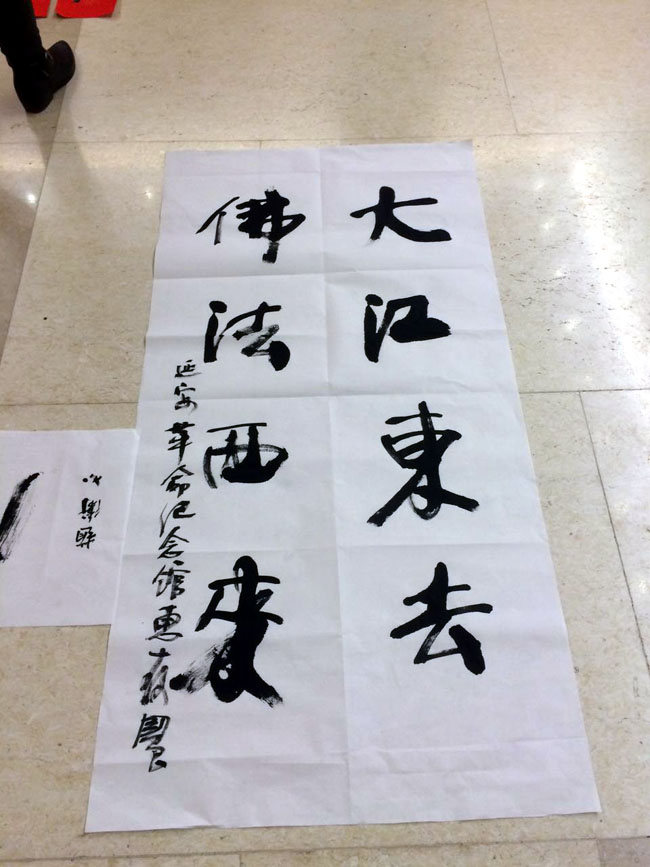 大江東去
佛法西來
延安革命纪念馆惠